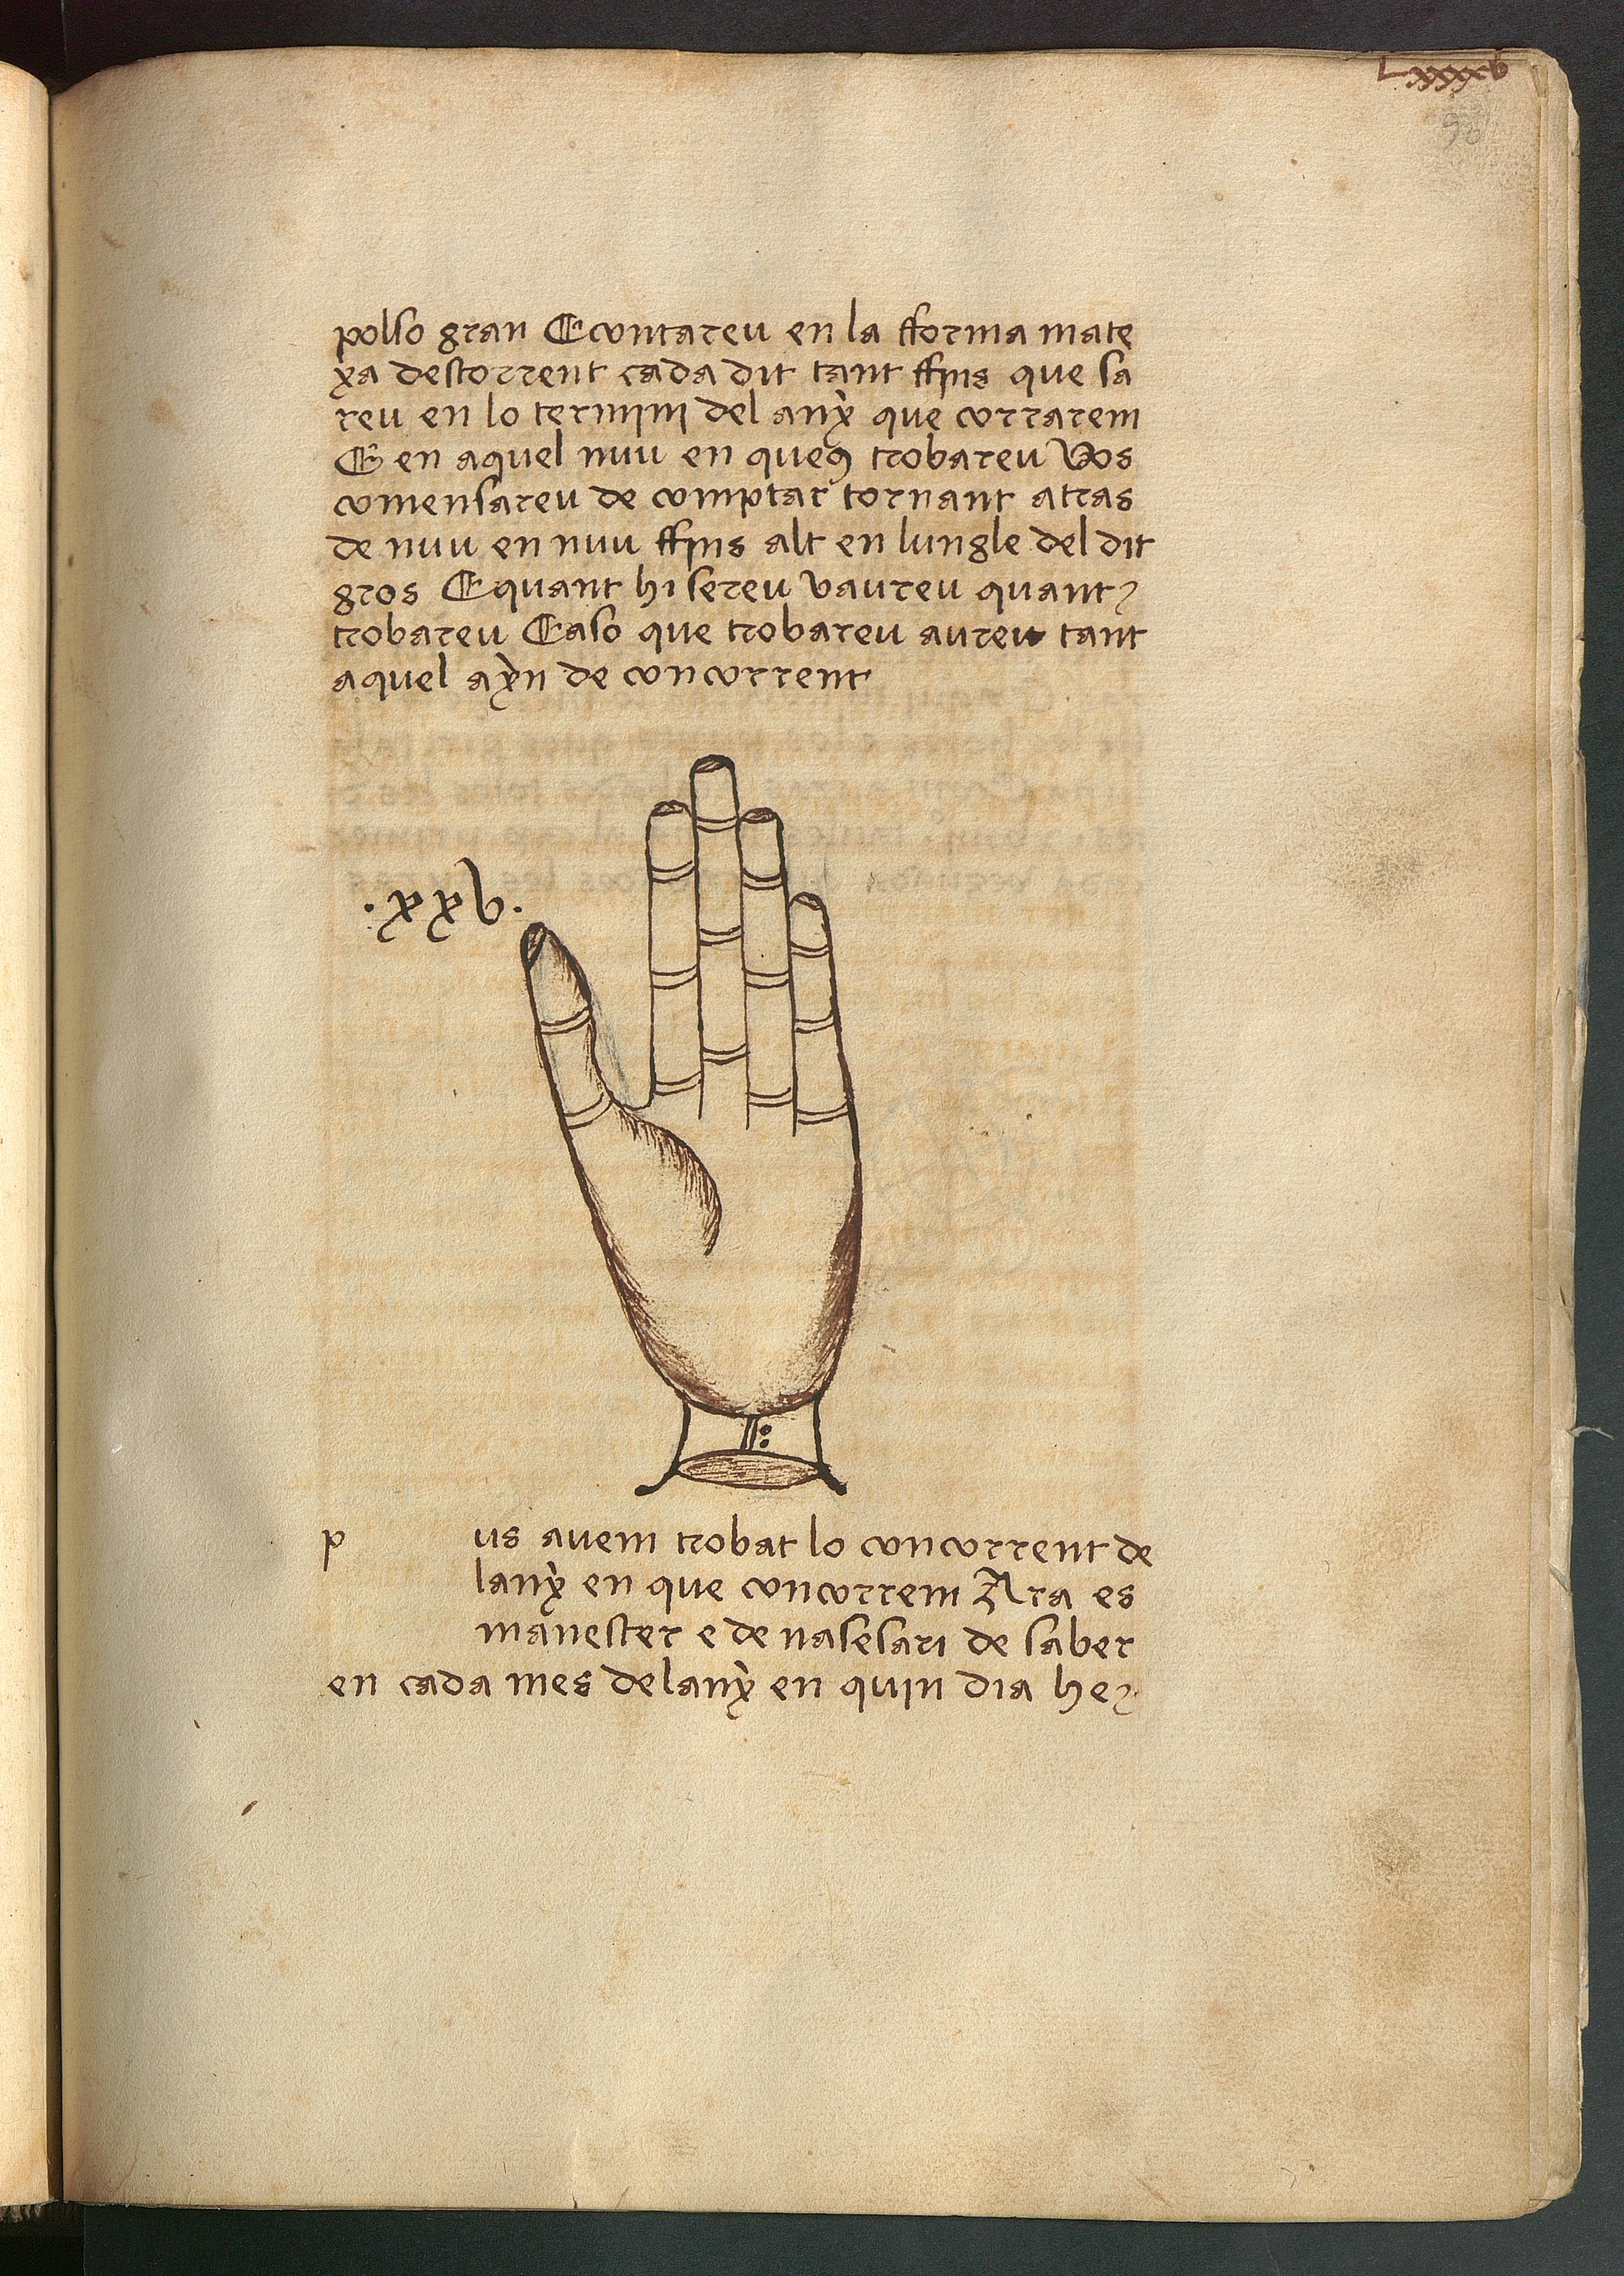 Lxxxxv
98
polso gran E contareu en la fforma mate
xa destorrent cada dit tant ffins que sa
reu en lo termini del anẏ que corrarem
E en aquel nuu en queus trobareu Vos
comensareu de comptar tornant atras
de nuu en nuu ffins alt en lungle del dit
gros E quant hi sereu vaureu quant
trobareu E aso que trobareu aureu tant
aquel aẏn de concorrent
.xxv.
p us avem trobat lo concorrent de
lanẏ en que concorrem Ara es
manester e de nasesari de saber
en cada mes de lanẏ en quin dia he